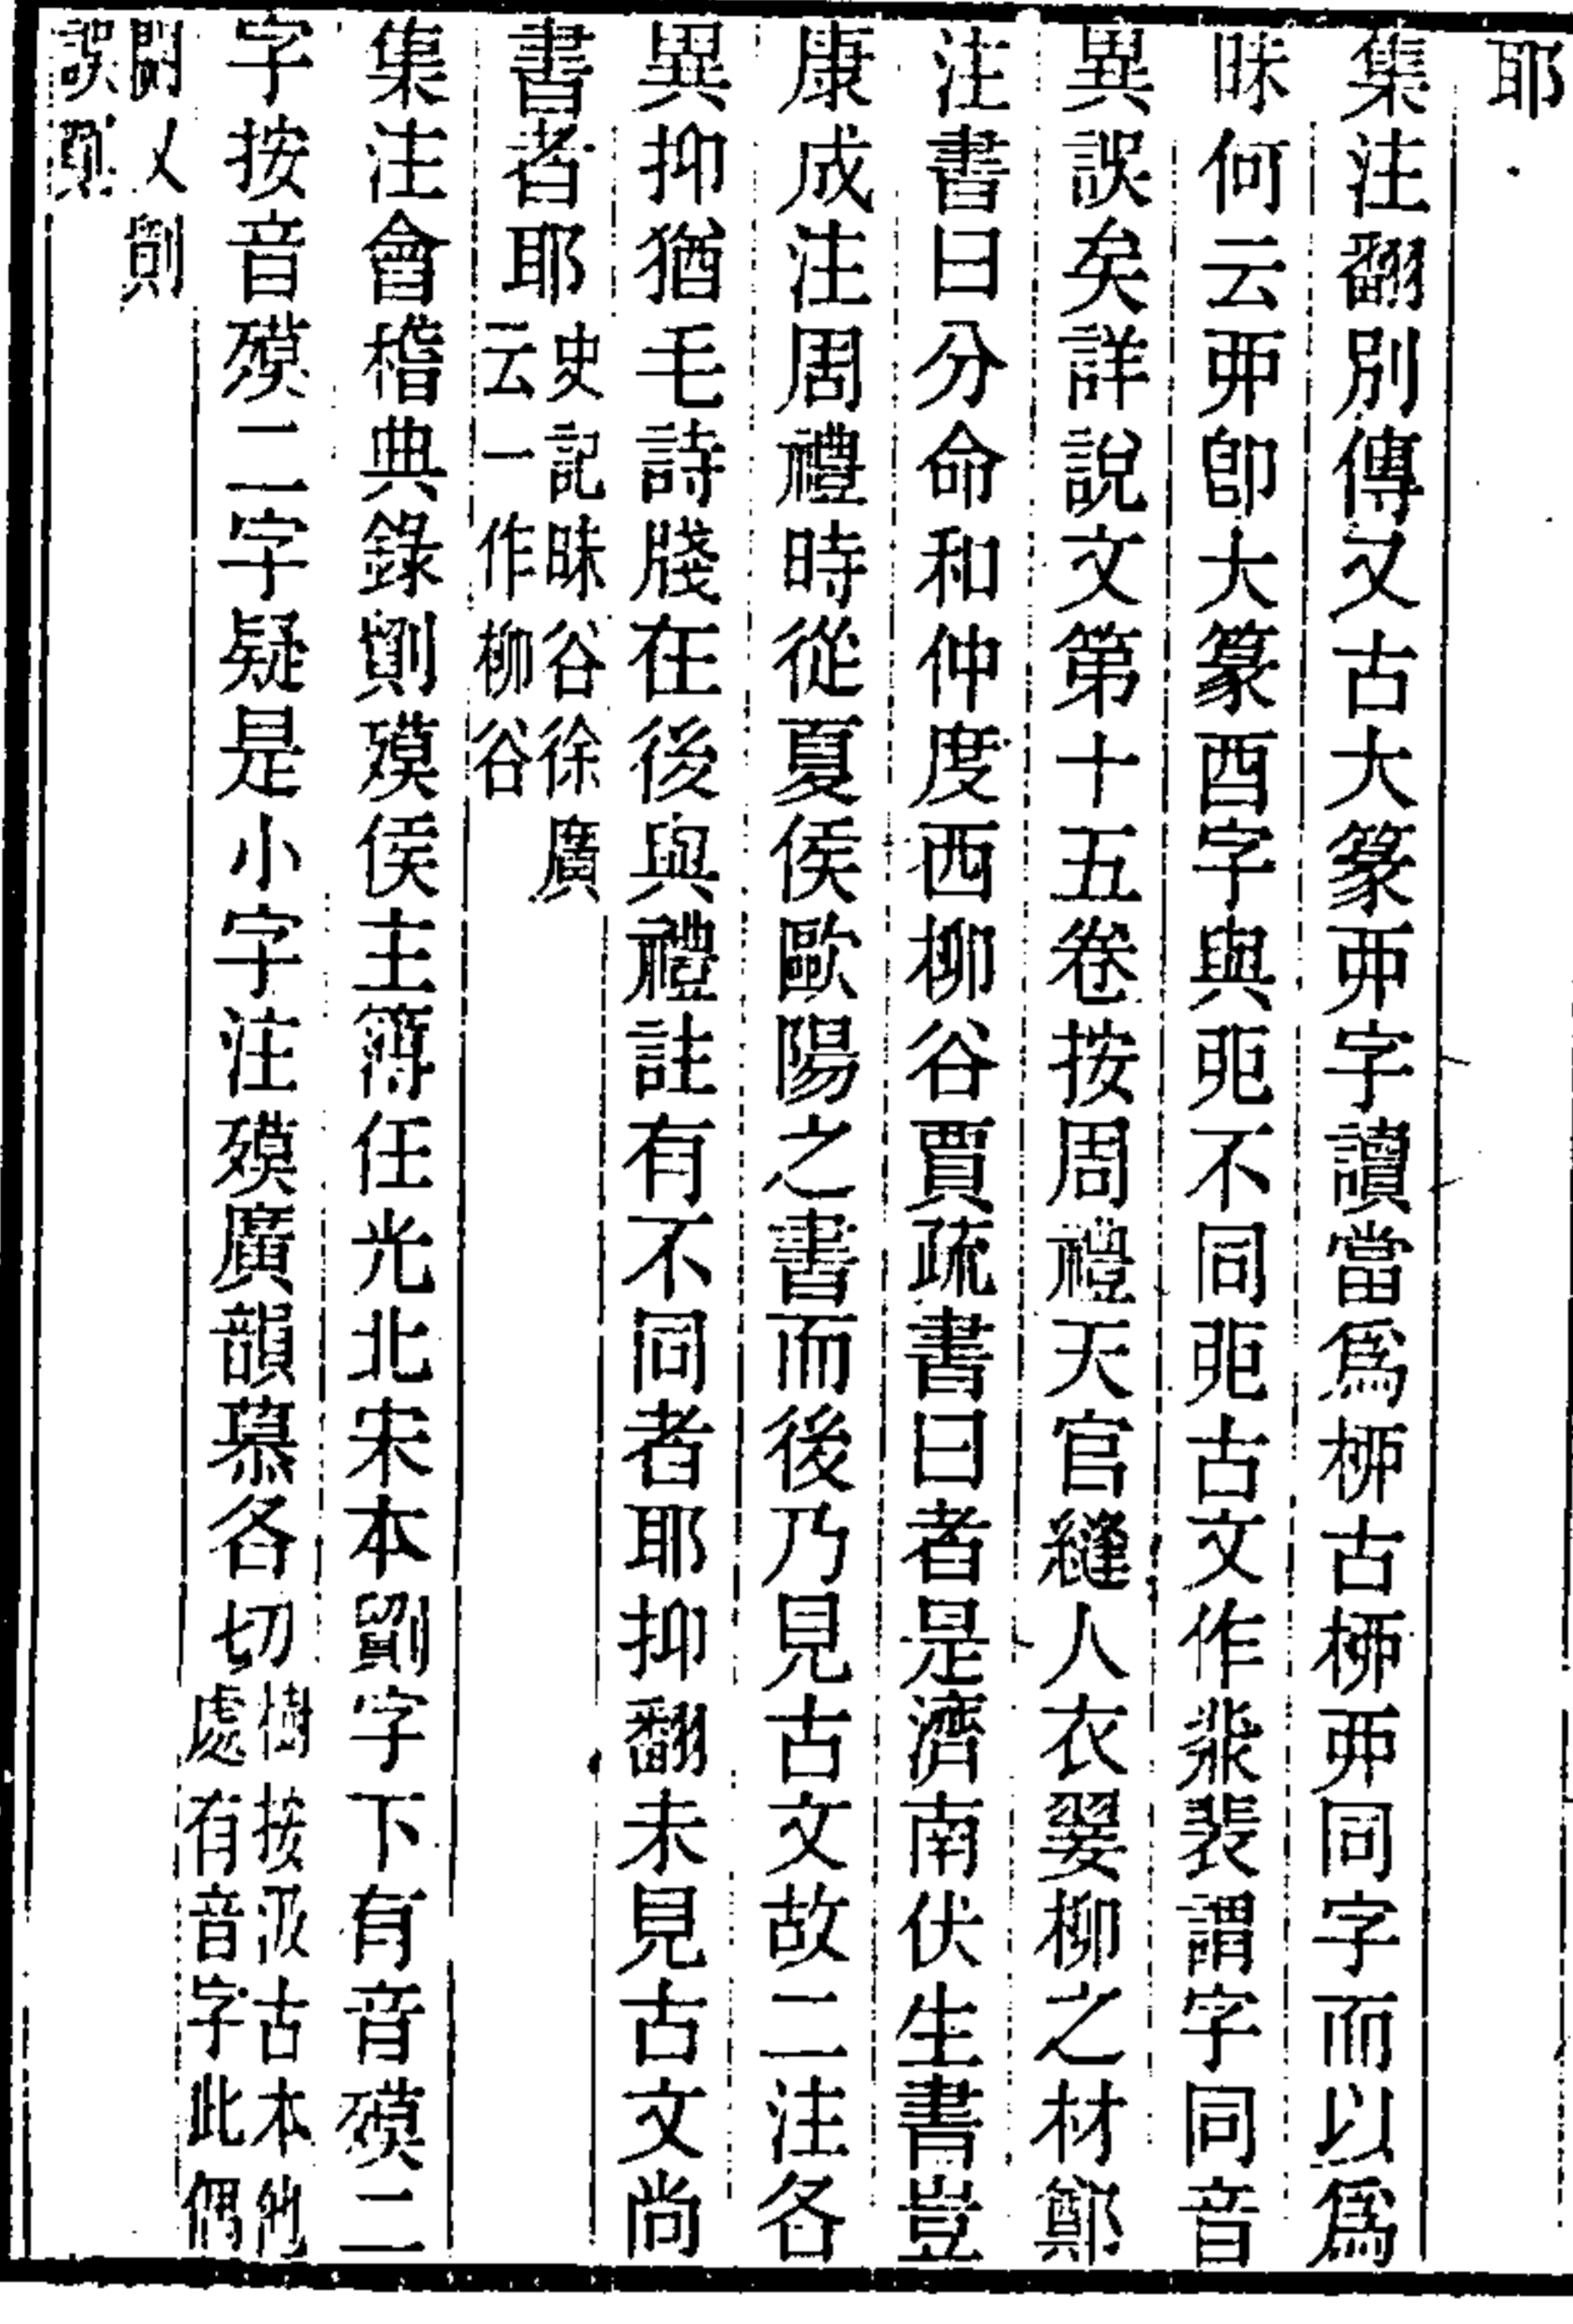 耶
集注翻別傳又古大篆丣字讀當爲桺古桺丣同字而以爲
昧何云丣卽大篆酉字與不同古文作裴謂字同音
異誤矣詳說文第十五卷按周禮天官縫人衣翣柳之材鄭
注書曰分命和仲度西柳谷賈疏書曰者是濟南伏生書豈
康成注周禮時從夏侯歐陽之書而後乃見古文故二注各
異抑猶毛詩牋在後與禮註有不同者耶抑翻未見古文尚
書者耶
史記昧谷徐廣
云一作柳谷
集注會稽典錄㱳侯主簿任光北宋本字下有音㱳二
字按音㱳二字疑是小字注㱳廣韻慕各切
樹按汲古本他
處有音字此偶
以
誤